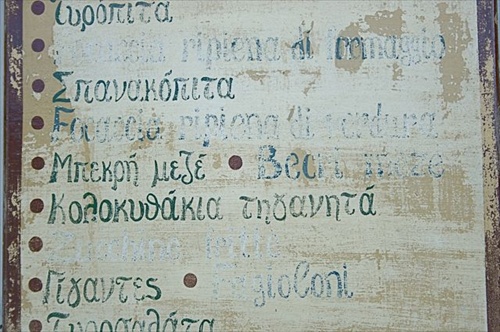 Τυρόπιτα
ripiena di formaggio
Σπανακόπιτα
Focaccia ripiena di verdura
Μπεκρή μεζέ • Becri meze
Κολοκυθάκια τηγανητά
Γίγαντες • Fagioloni
Τυροσαλάτα